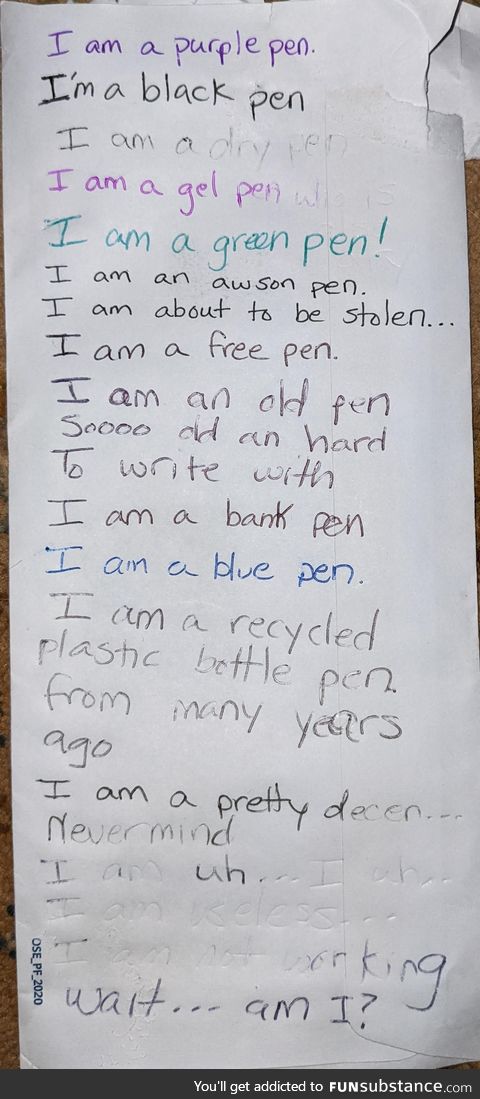 I am a purple pen.
I'm a black pen
I am a dry pen
I am a gel pen
I am a green pen!
I am an awson pen.
I am about to be stolen...
I am a free pen.
I am an old pen
Soooo old an hard
To write with
I am a bank pen
I am a blue pen.
I am a recycled
plastic bottle pen
from many years
ago
I am a pretty decen...
Nevermind
I am uh... I uh..
I am useless...
I am not working
wait... am I?
OSE_PF_2020
You'll get addicted to FUNsubstance.com